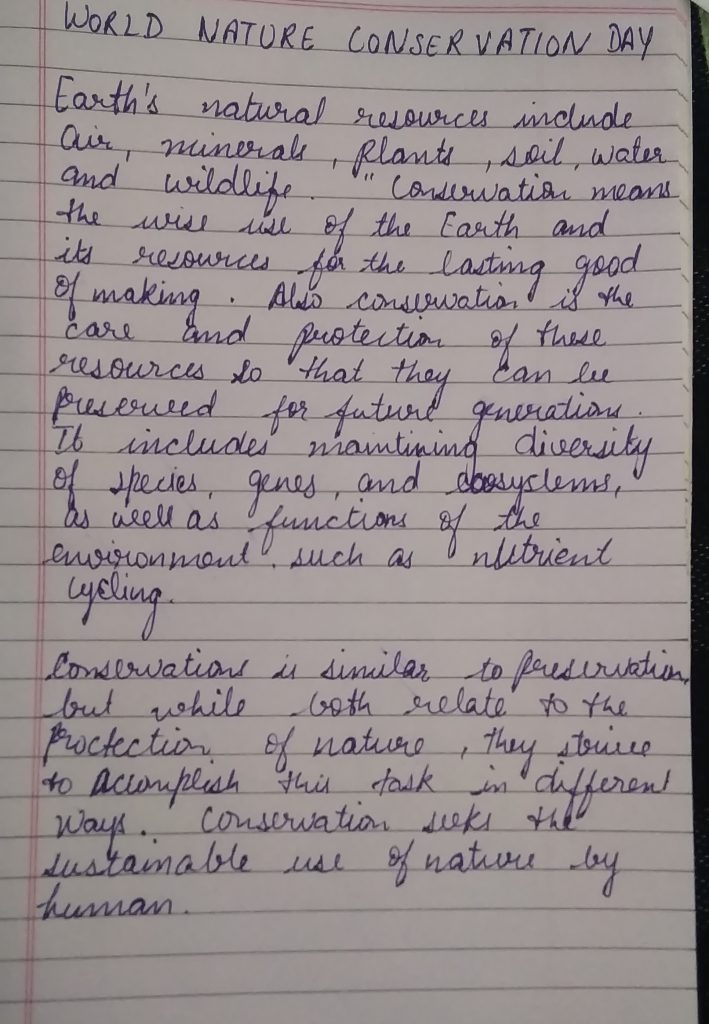 WORLD NATURE CONSERVATION DAY
Earth's natural resources include
air, minerals, plants, soil, water
and wildlife. "Conservation means
the wise use of the Earth and
its resources for the lasting good
of making. Also conservation is the
care and protection of these
resources so that they can be
preserved for future generations.
It includes maintining diversity
of species, genes, and ecosystems,
as well as functions of the
environment, such as nutrient
cycling.
Conservations is similar to preservation,
but while both relate to the
proctection of nature, they strive
to accomplish this task in different
ways. Conservation seeks the
sustainable use of nature by
human.